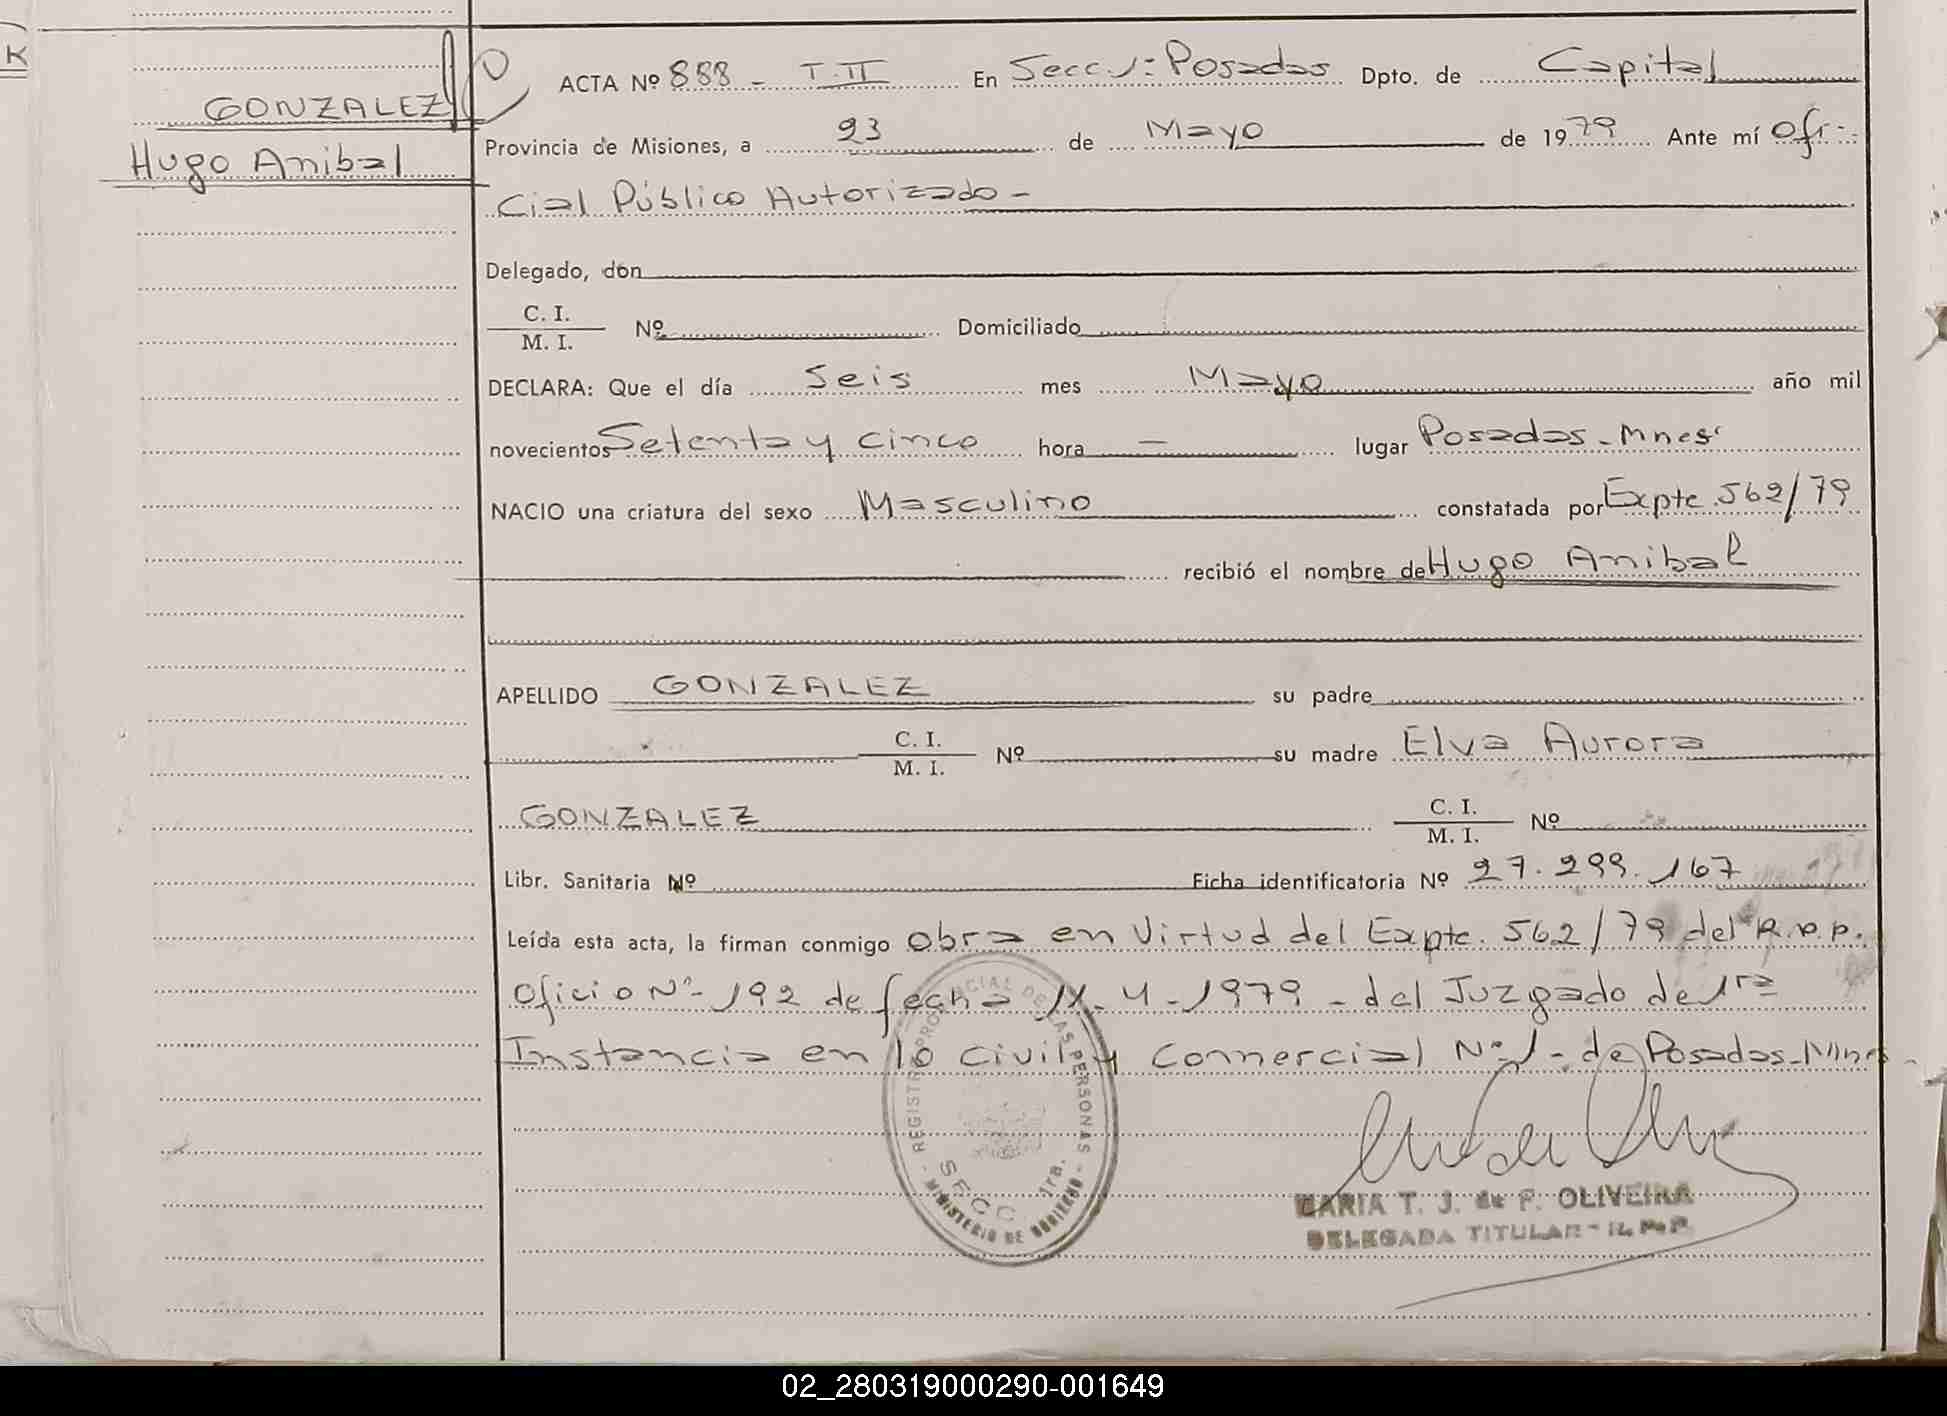 K
GONZALEZ
Hugo Anibal
ACTA Nº 888 - T. II En Secc. 1: Posadas Dpto. de Capital
Provincia de Misiones, a 23 de Mayo de 1979 Ante mí Ofi-
cial Público Autorizado -
Delegado, don
C. I.
M. I.
Nº Domiciliado
DECLARA: Que el día Seis mes Mayo año mil
novecientos Setenta y cinco hora — lugar Posadas - Mnes
NACIO una criatura del sexo Masculino constatada por Expte. 562/79
recibió el nombre de Hugo Anibal
APELLIDO GONZALEZ su padre
C. I.
M. I.
Nº su madre Elva Aurora
GONZALEZ
C. I.
M. I.
Nº
Libr. Sanitaria Nº Ficha identificatoria Nº 27.299.167
Leída esta acta, la firman conmigo obra en Virtud del Expte. 562/79 del R.P.P.
Oficio Nº 192 de fecha 11-4-1979 - del Juzgado de 1ra
Instancia en lo Civil y Comercial Nº 1 - de Posadas - Mnes -
REGISTRO PROVINCIAL DE LAS PERSONAS
SECC. 1ra.
MINISTERIO DE GOBIERNO
MARIA T. J. de F. OLIVEIRA
DELEGADA TITULAR - R. P. P.
02_280319000290-001649